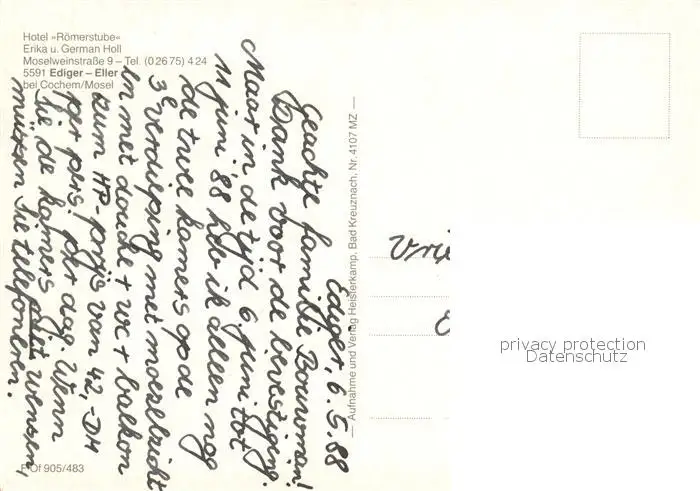 Hotel »Römerstube«
Erika u. German Holl
Moselweinstraße 9 – Tel. (0 26 75) 4 24
5591 Ediger – Eller
bei Cochem/Mosel
Ediger, 6.5.88
Geachte familie Bouwman!
Dank voor de bevestiging.
Maar in de tijd 6 juni tot
11 juni '88 heb ik alleen nog
de twee kamers op de
3e verdieping met moezelzicht
en met douche + wc + balkon
zum HP-prijs van 42,-DM
per pers. per dag. Wenn
Sie de kamers wensen,
müssen Sie telefoneren.
— Aufnahme und Verlag Heisterkamp, Bad Kreuznach, Nr. 4107 MZ —
privacy protection
Datenschutz
Of 905/483